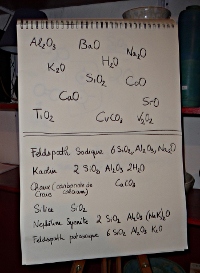 Al₂O₃ BaO Na₂O
K₂O H₂O
SiO₂ CoO
CaO SrO
TiO₂ CuCO₃ V₂O₅
Feldspath Sodique 6 SiO₂, Al₂O₃, Na₂O
Kaolin 2 SiO₂ Al₂O₃ 2H₂O
Craie (carbonate de calcium) CaCO₃
Silice SiO₂
Nephéline Syénite 2 SiO₂ Al₂O₃ (NaK)₂O
Feldspath potassique 6 SiO₂ Al₂O₃ K₂O